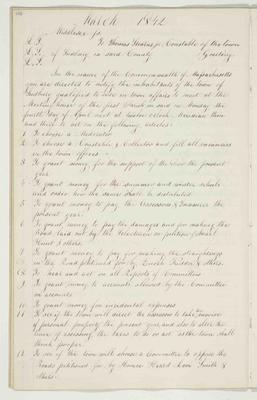 March 1842
Middlesex ss.
L.S. To Thomas Stearns jr Constable of the town
L.S. of Sudbury in said County Greeting
L.S.
In the name of the Commonwealth of Massachusetts
you are directed to notify the inhabitants of the town of
Sudbury qualified to vote in town affairs to meet at the
Meeting house of the first Parish in said on Monday the
fourth day of April next at twelve o'clock Meridian then
and there to act on the following articles:
1 To choose a Moderator
2 To choose a Constable & Collector and fill all vacancies
in the town offices
3 To grant money for the support of the Poor the present
year
4 To grant money for the summer and winter schools
and order how the same shall be distributed
5 To grant money to pay the Assessors & Treasurer the
present year
6 To grant money to pay the damages and for making the
Road laid out by the Selectmen on petition of
Hunt & others
7 To grant money to pay for making the straightnings
in the Road petitioned for by & others
8 To hear and act on all Reports of Committees
9 To grant money to accounts allowed by the Committee
on accounts
10 To grant money for incidental expenses
11 To see if the town will direct the Assessors to take an invoice
of personal property the present year and also to alter the
time of assessing the taxes to do or act as the town shall
think proper
12 To see if the town will choose a Committee to oppose the
Roads petitioned for by Horace Heard Smith &
others